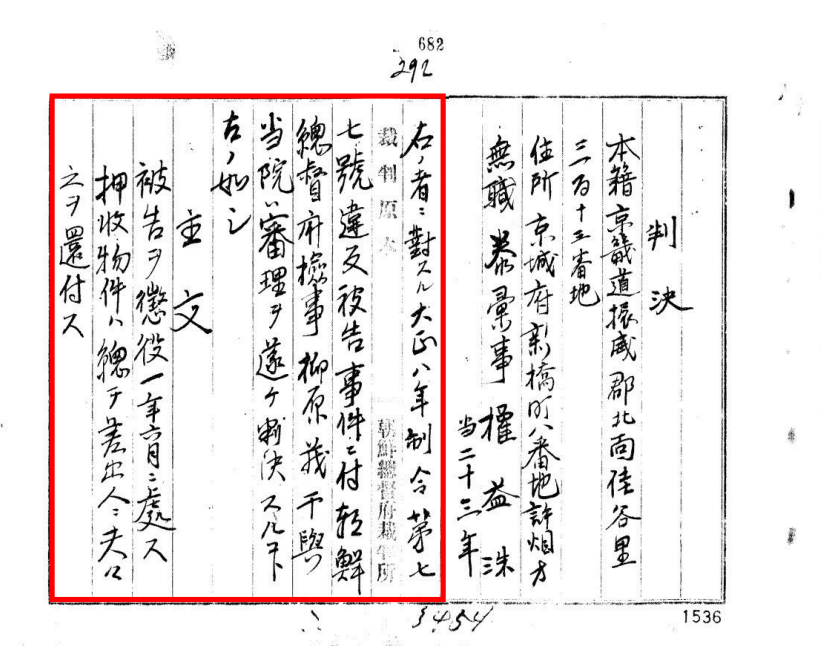 682
292
判決
本籍京畿道振威郡北面佳谷里
三百十三番地
住所京城府新橋町八番地許烟方
無職 泰彙事 權益洙
当二十三年
右ノ者ニ對スル大正八年制令第七
裁判原本
朝鮮總督府裁判所
七號違反被告事件ニ付朝鮮
總督府檢事柳原茂干與
当院ハ審理ヲ遂ケ判決スルコト
左ノ如シ
主文
被告ヲ懲役一年六月ニ處ス
押收物件ハ總テ差出人ニ夫々
之ヲ還付ス
1536